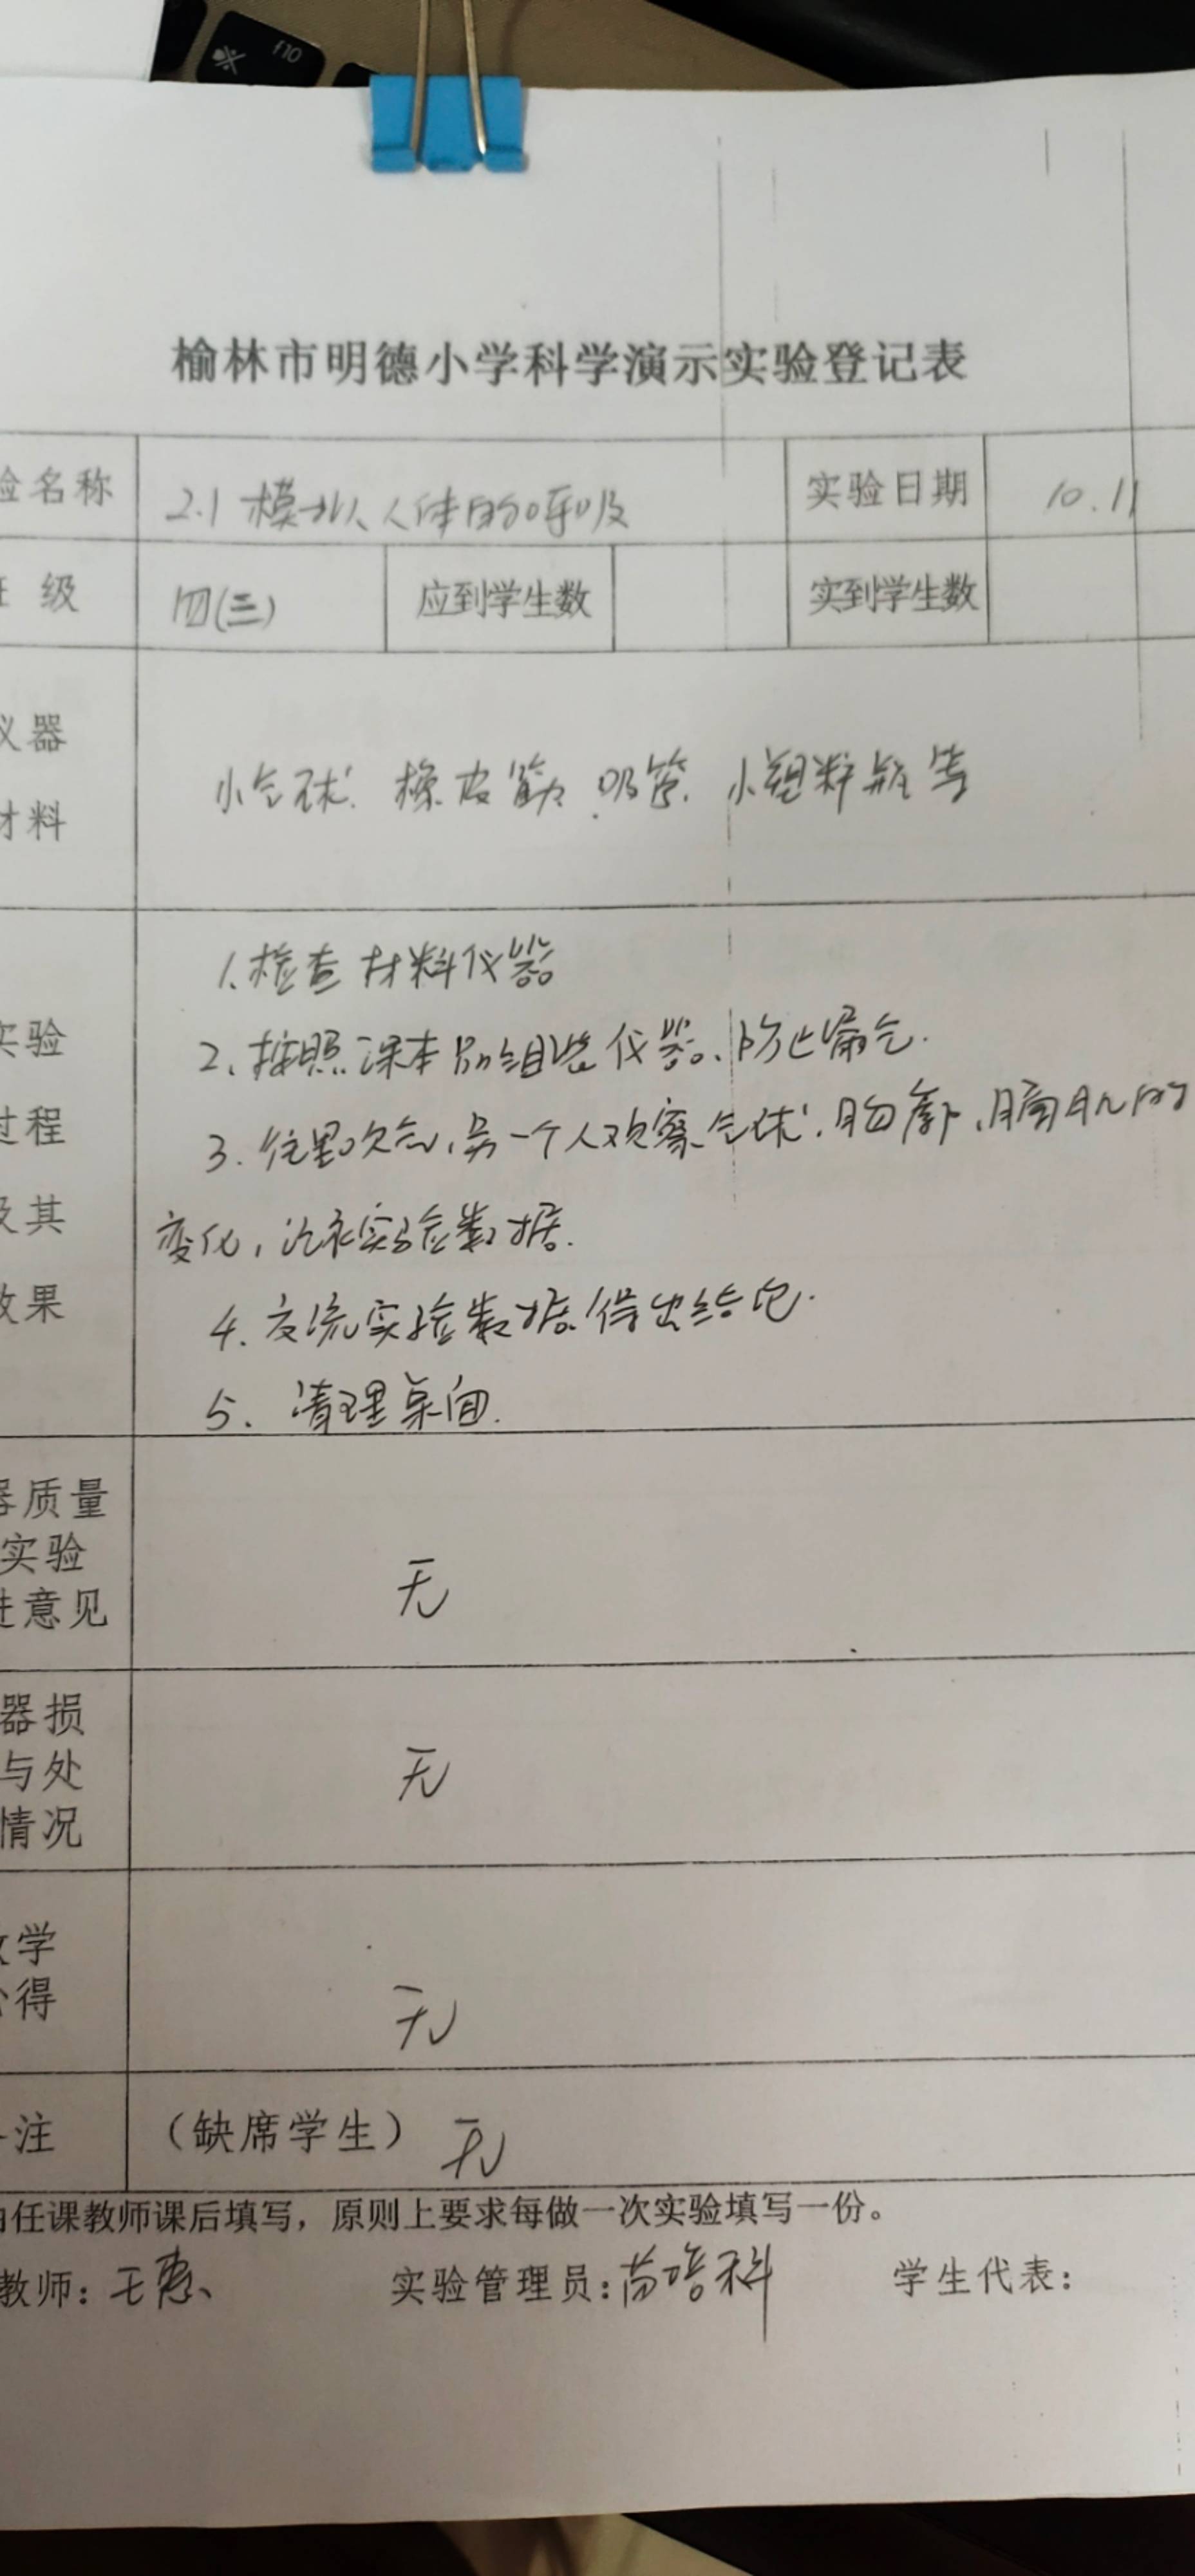 f10
榆林市明德小学科学演示实验登记表
验名称 2.1 模拟人体的呼吸 实验日期 10.11
班 级 四(三) 应到学生数 实到学生数
仪器
材料
小气球、橡皮筋、吸管、小塑料瓶等
实验
过程
及其
效果
1.检查材料仪器
2、按照课本 组装仪器、防止漏气.
3.往里吹气,另一个人观察气球、胸廓、膈肌的
变化,记录实验数据.
4.交流实验数据.得出结论.
5、清理桌面.
器质量
实验
进意见
无
器损
与处
情况
无
教学
心得
无
注 (缺席学生) 无
由任课教师课后填写，原则上要求每做一次实验填写一份。
教师：王惠 实验管理员：苗培科 学生代表：